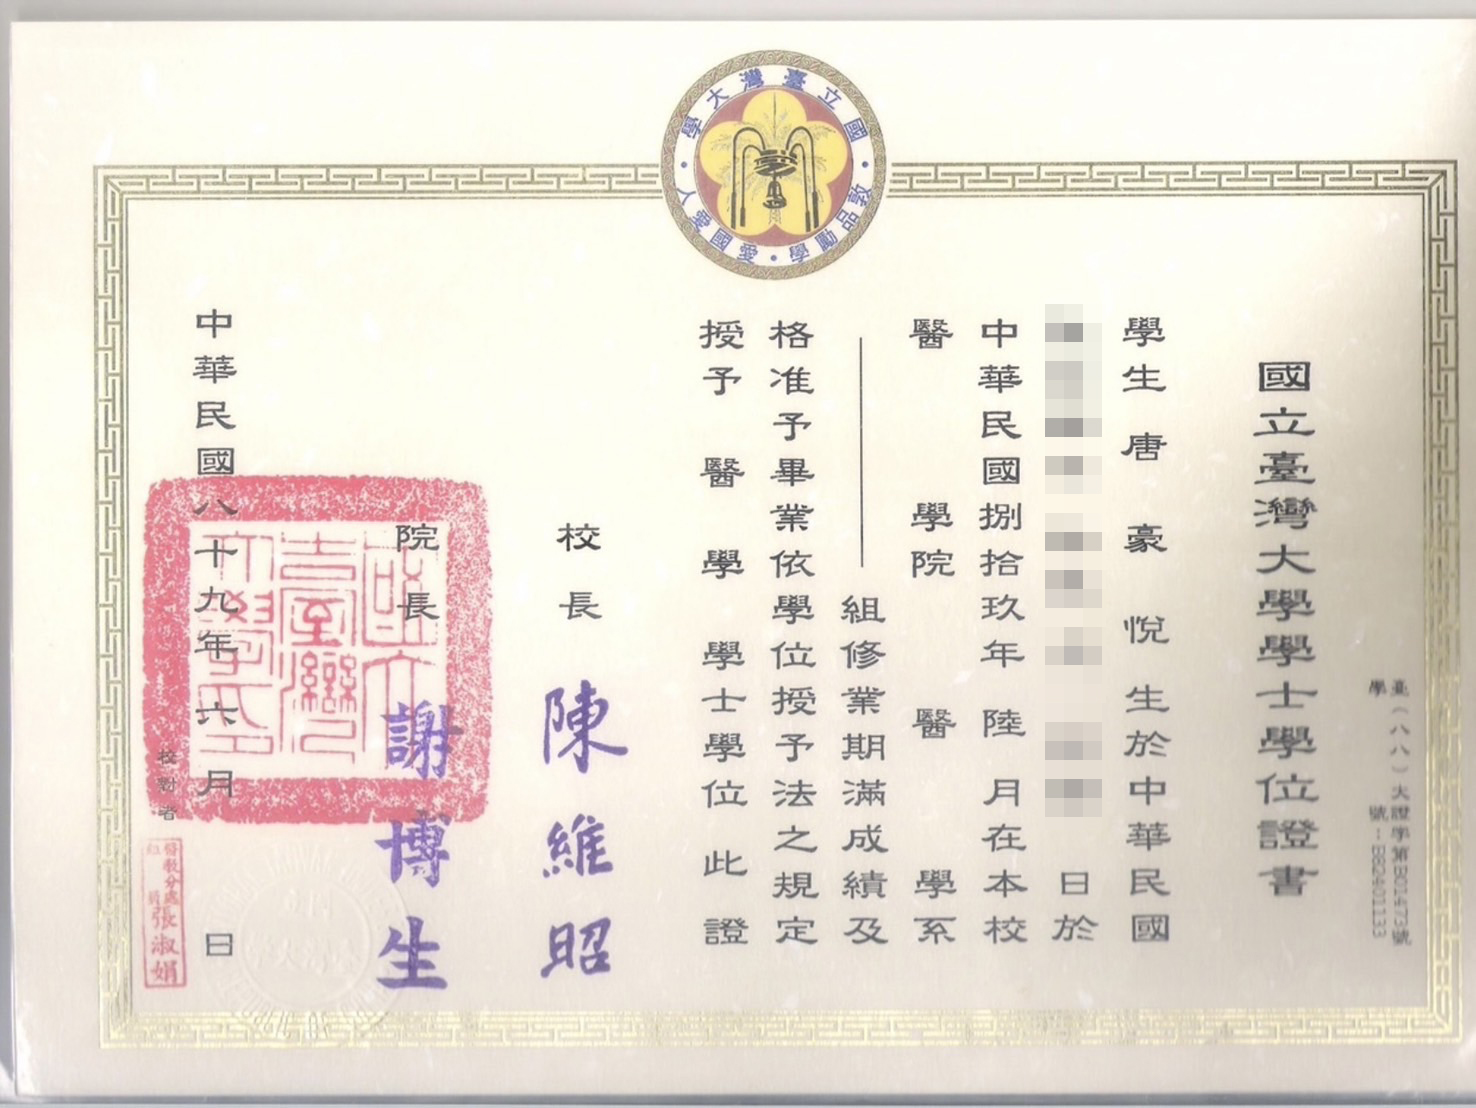 國立臺灣大學
敦品勵學・愛國愛人
臺(八八)大證字第B01473號
學號:B82401133
國立臺灣大學學士學位證書
學生唐豪悅生於中華民國
日於
中華民國捌拾玖年陸月在本校
醫學院醫學系
組修業期滿成績及
格准予畢業依學位授予法之規定
授予醫學學士學位此證
校長陳維昭
院長謝博生
國立臺灣大學印
中華民國八十九年六月日
校對者
張淑娟